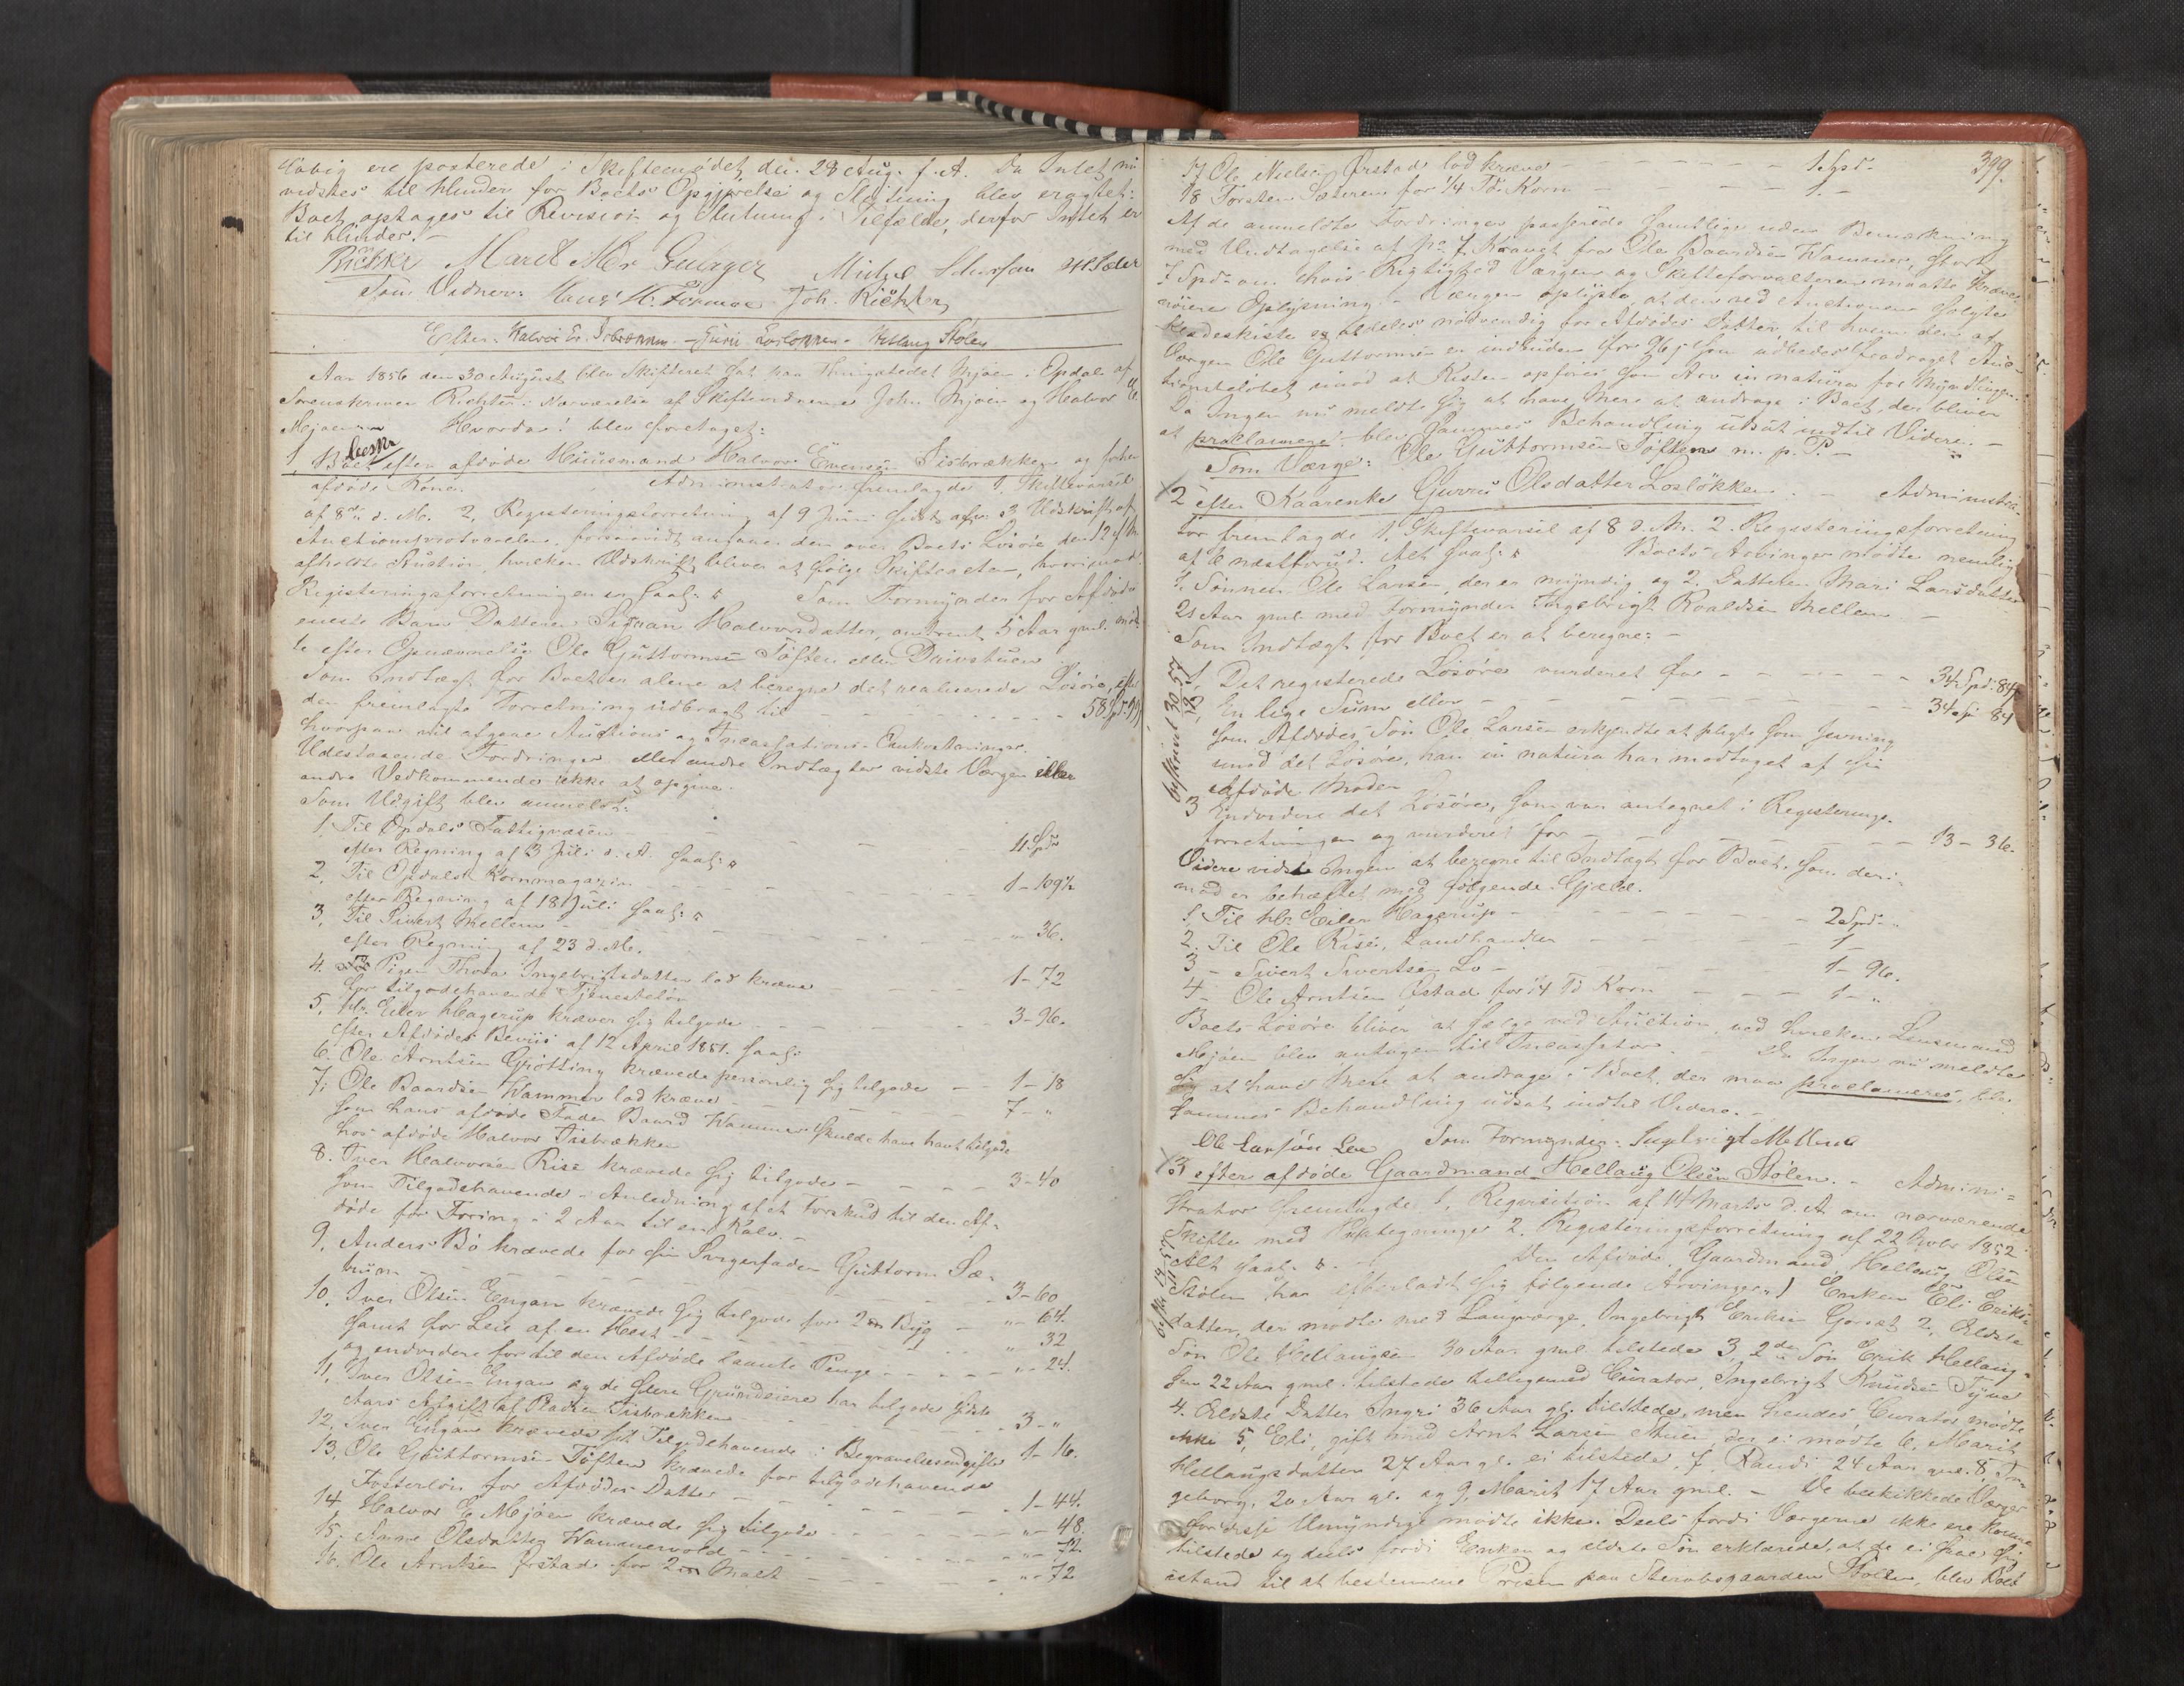 ere posterede i Skiftemødet den 28 Aug. f. A. Da Intet nu
vidstes til Hinder for Boets Opgjørelse og Slutning blev eragtet:
Boet optages til Revision og Slutning i Tilfælde, derfor Intet er
til Hinder. –
Richter
Som Vidner: Joh. Richter
Efter Halvor Ev. – Guri Losløkken – Hellaug Stølen
Aar 1856 den 30 August blev Skifteret sat paa Thingstedet Mjøen i Opdal af
Sorenskriver Richter i Nærværelse af Skiftevidnerne John Mjøen og Halvor E.
Mjøen Hvorda! blev foretaget:
1, Boet efter afdøde Huusmand Halvor Evensen Tisbrækken og
afdøde Kone. Administrator fremlagde 1, Skiftevarsel
af 8de d. M. 2, Registeringsforretning af 9 Juni sidst 3 Udskrift af
Auctionsprotocollen, forsaavidt angaaer den over Boets Løsøre den 12
afholdte Auction, hvilken Udskrift bliver at følge Skifteacten, hvorimod
Registeringsforretningen er saal: Som Formynder for Afdødes
eneste Barn Datteren Halvorsdatter, omtrent 5 Aar gml. mød-
te efter Opnævnelse Ole Guttormsen Tøften eller Drivstuen
Som Indtægt for Boet er alene at beregne det realiserede Løsøre, efter
den fremlagte Forretning udbragt til – – – 58 Spd.
hvorpaa vil afgaae Auctions og Incassations-Omkostninger.
Udestaaende Fordringer eller andre Indtægter vidste Værgen eller
andre Vedkommende ikke at opgive.
Som Udgift blev anmeldt:
1, Til Opdals Fattigvæsen – – – 4 Spd
efter Regning af 3 Juli d. A. saal:
2, Til Opdals Kornmagazin – – – 1 – 109½
efter Regning af 18 Juli saal:
3, Til Sivert Mellem – – – " 36.
efter Regning af 23 d. M.
4. Pigen Thora Ingebrigtsdatter lod kræve – – – 1 – 72
for tilgodehavende Tjenesteløn
5, Hr. Eiler Hagerup kræver sig tilgode – – – 3 – 96.
efter Afdødes Beviis af 12 April 1851. saal:
6. Ole Arntsen Grøtting krævede personlig sig tilgode – – 1 – 18
7, Ole Baardsen Wammer lod kræve – – – 7 – "
som hans afdøde Fader Baard Wammer skulde have havt tilgode
hos afdøde Halvor Tisbrækken
8. Iver Halvorsen Rise krævede sig tilgode – – – 3 – 40
som Tilgodehavende i Anledning af et Forskud til den Af-
døde for Foring i 2 Aar til en Kalv. –
9, Anders Bø krævede for sin Svigerfader Guttorm Sæ-
– – – 3 – 60
10. Iver Olsen Engan krævede sig tilgode for 2 Byg – " 64.
samt for Leie af en Hest – – – " 32
og endvidere for til den Afdøde laante Penge – – – " – 24.
11, Iver Olsen Engan og de flere Grundeiere har tilgode sidste
Aars Afgift af Pladsen Tisbrækken – – – 3 – "
12, Iver Engan krævede sit Tilgodehavende i Begravelsesudgifter 1 – 16.
13, Ole Guttormsen Tøften krævede for tilgodehavende
Fosterløn for Afdødes Datter – – – 1 – 44.
14 Halvor E. Mjøen krævede sig tilgode – – – " – 48.
15. Anne Olsdatter Wammervold – – – " – 72.
16. Ole Arntsen Ørstad for 2 Malt – – – " – 72
399.
17 Ole Nielsen Ørstad lod kræve – – – 1 Spd. "
18 Torsten Sæteren for 1/4 Td. Korn – – – 1. –
Af de anmeldte Fordringer passerede samtlige uden Bemærkning
med Undtagelse af No. 7, Kravet fra Ole Baardsen Wammer, stort
7 Spd. om hvis Rigtighed Værgen og Skifteforvalteren maatte kræve
nøiere Oplysning. – Værgen oplyste, at den ved Auctionen solgte
Klædeskiste er aldeles nødvendig for Afdødes Datter, til hvem den af
Værgen Ole Guttormsen er indbuden for 96 s som udbedes fradraget Auc-
tionsbeløbet imod at Kisten opføres som Arv in natura for Myndlingen.
Da Ingen nu meldte sig at have Mere at andrage i Boet, der bliver
at proclamere, blev Sammes Behandling udsat indtil Videre. –
Som Værge: Ole Guttormsen Tøften m. p. P. –
2 efter Kaarenke Gurru Olsdatter Losløkken. – Administra-
tor fremlagde 1, Skiftevarsel af 8 d. M. 2. Registeringsforretning
af 6 næstforud. Alt saal: Boets Arvinger mødte nemlig
1, Sønnen Ole Larsen, der er myndig og 2. Datteren Mari Larsdatter
21 Aar gml. med Formynder Ingebrigt Roaldsen Mellem –
Som Indtægt for Boet er at beregne: –
1, Det registerede Løsøre vurderet for – – – 34 Spd. 84
2, En lige Sum eller – – – 34 Sp 84
som Afdødes Søn Ole Larsen erkjendte at skylde som Jevning
imod det Løsøre, han in natura har modtaget af sin
afdøde Moder
3 Endvidere det Løsøre, som var antegnet i Registerings-
forretningen og vurderet for – – – 13 – 36.
Videre vidste Ingen at beregne til Indtægt for Boet, som deri-
mod er behæftet med følgende Gjæld.
1, Til Hr. Eiler Hagerup – – – 2 Spd. "
2. Til Ole Rise, Landhandler – – – 1
3 – Sivert Sivertsen Lo – – – 1 – 96.
4 – Ole Arntsen Østad for 1/4 Td Korn – – – 1 – "
Boets Løsøre bliver at sælge ved Auction, ved hvilken Lensmand
Mjøen blev antagen til Incassator. – Da Ingen nu meldte
sig at have Mere at andrage i Boet, der maa proclameres, blev
Sammes Behandling udsat indtil Videre. –
Ole Larsøn Loe Som Formynder: Ingebrigt Mellem
3 efter afdøde Gaardmand Hellaug Olsen Stølen. – Admini-
strator fremlagde 1, Reqvisition af 14 Marts d. A. om nærværende
Skifte med Paategninger 2. Registeringsforretning af 22 Novbr 1852
Alt saal: Den Afdøde, Gaardmand Hellaug Olsen
Stølen har efterladt sig følgende Arvinger: 1 Enken Eli Eriks-
datter, der mødte med Laugværge, Ingebrigt Eriksen Gorset 2, Ældste
Søn Ole Hellaugsen 30 Aar gml. tilstede 3, 2den Søn Erik Hellaug-
sen 22 Aar gml. tilstede tilligemed Curator, Ingebrigt Knudsen
4. Ældste Datter Ingri 36 Aar gl. tilstede, men hendes Curator mødte
ikke 5, Eli, gift med Arnt Larsen Stuen, der ei mødte 6, Marit
Hellaugsdatter 27 Aar gl. ei tilstede. 7, Randi 24 Aar gml. 8, In-
geborg, 20 Aar gl. og 9, Marit 17 Aar gml. – De beskikkede Værger
for disse Umyndige mødte ikke. Deels fordi Værgerne ikke ere komne
tilstede og deels fordi Enken og ældste Søn erklærede, at de ei saae sig
istand til at bestemme Prisen paa Sterbogaarden Stølen, blev Boet